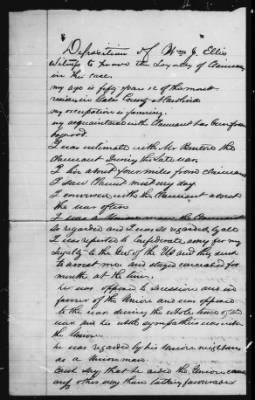 Deposition of Wm J. Ellis
Witness to prove the Loyalty of Claimant
in this case
my age is fifty years
my occupation is farming.
my acquaintance with Claimant has been from
boyhood.
I was intimate with Mr the
Claimant During the Late war
I live about four miles from claimant
I saw Claimant most every day
I conversed with the Claimant about
the war often
I was a Union man the Claimant
so regarded and I was so regarded by all
I was reported to Confederate army for my
Loyalty to the Gov of the US and they sent
to arrest me and stayed concealed for
month at the time.
he was opposed to secession and in
favor of the Union and was opposed
to the war during the whole time of the
war and his whole sympathies was with
the Union
he was regarded by his Union neighbors
as a Union man.
that he aided the Union cause
any other way than talking favorable